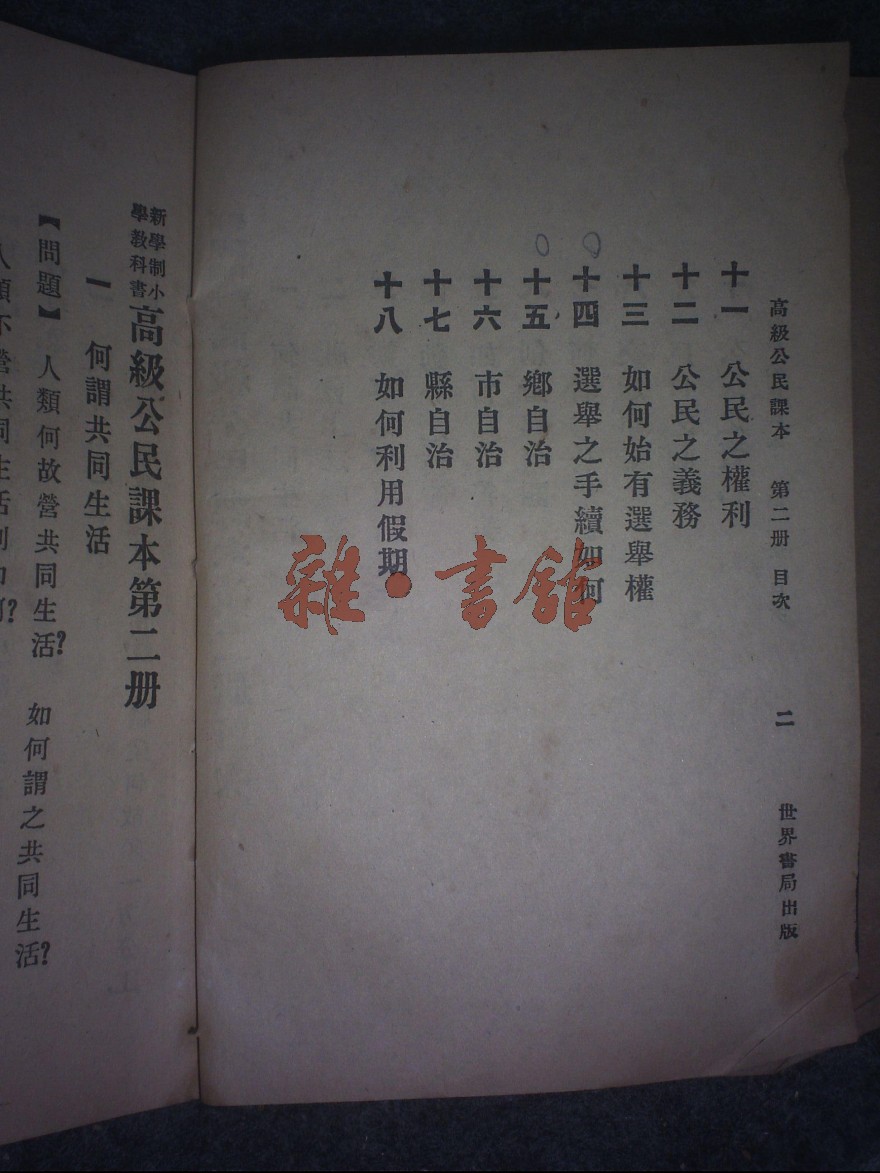 高級公民課本　第二册　目次　二　世界書局出版
十一　公民之權利
十二　公民之義務
十三　如何始有選舉權
十四　選舉之手續如何
十五　鄉自治
十六　市自治
十七　縣自治
十八　如何利用假期
雜·書館
新學制小學教科書高級公民課本第二册
一　何謂共同生活
【問題】人類何故營共同生活？　如何謂之共同生活？
人類不營共同生活則如何？